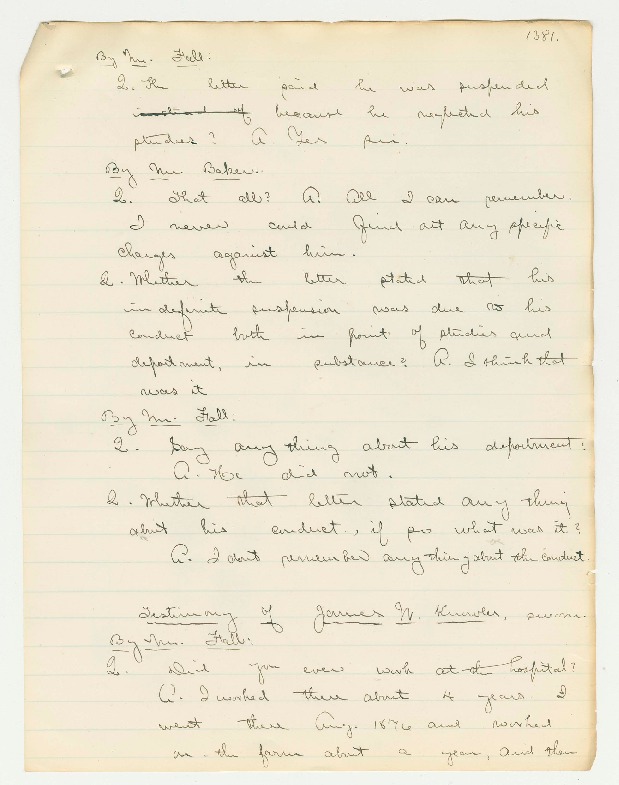 1381.
By Mr. Fall:
Q. The letter said he was suspended
instead of because he neglected his
studies? A. Yes sir.
By Mr. Baker.
Q. That all? A. All I can remember.
I never could find out any specific
charges against him.
Q. Whether the letter stated that his
indefinite suspension was due to his
conduct both in point of studies and
deportment, in substance? A. I think that
was it
By Mr. Fall.
Q. Say anything about his deportment?
A. He did not.
Q. Whether that letter stated any thing
about his conduct, if so what was it?
A. I dont remember anything about the conduct.
Testimony of James W. Knowles, sworn.
By Mr. Fall:
Q. Did you ever work at the hospital?
A. I worked there about 4 years I
went there Aug. 1876 and worked
on the farm about a year, and then